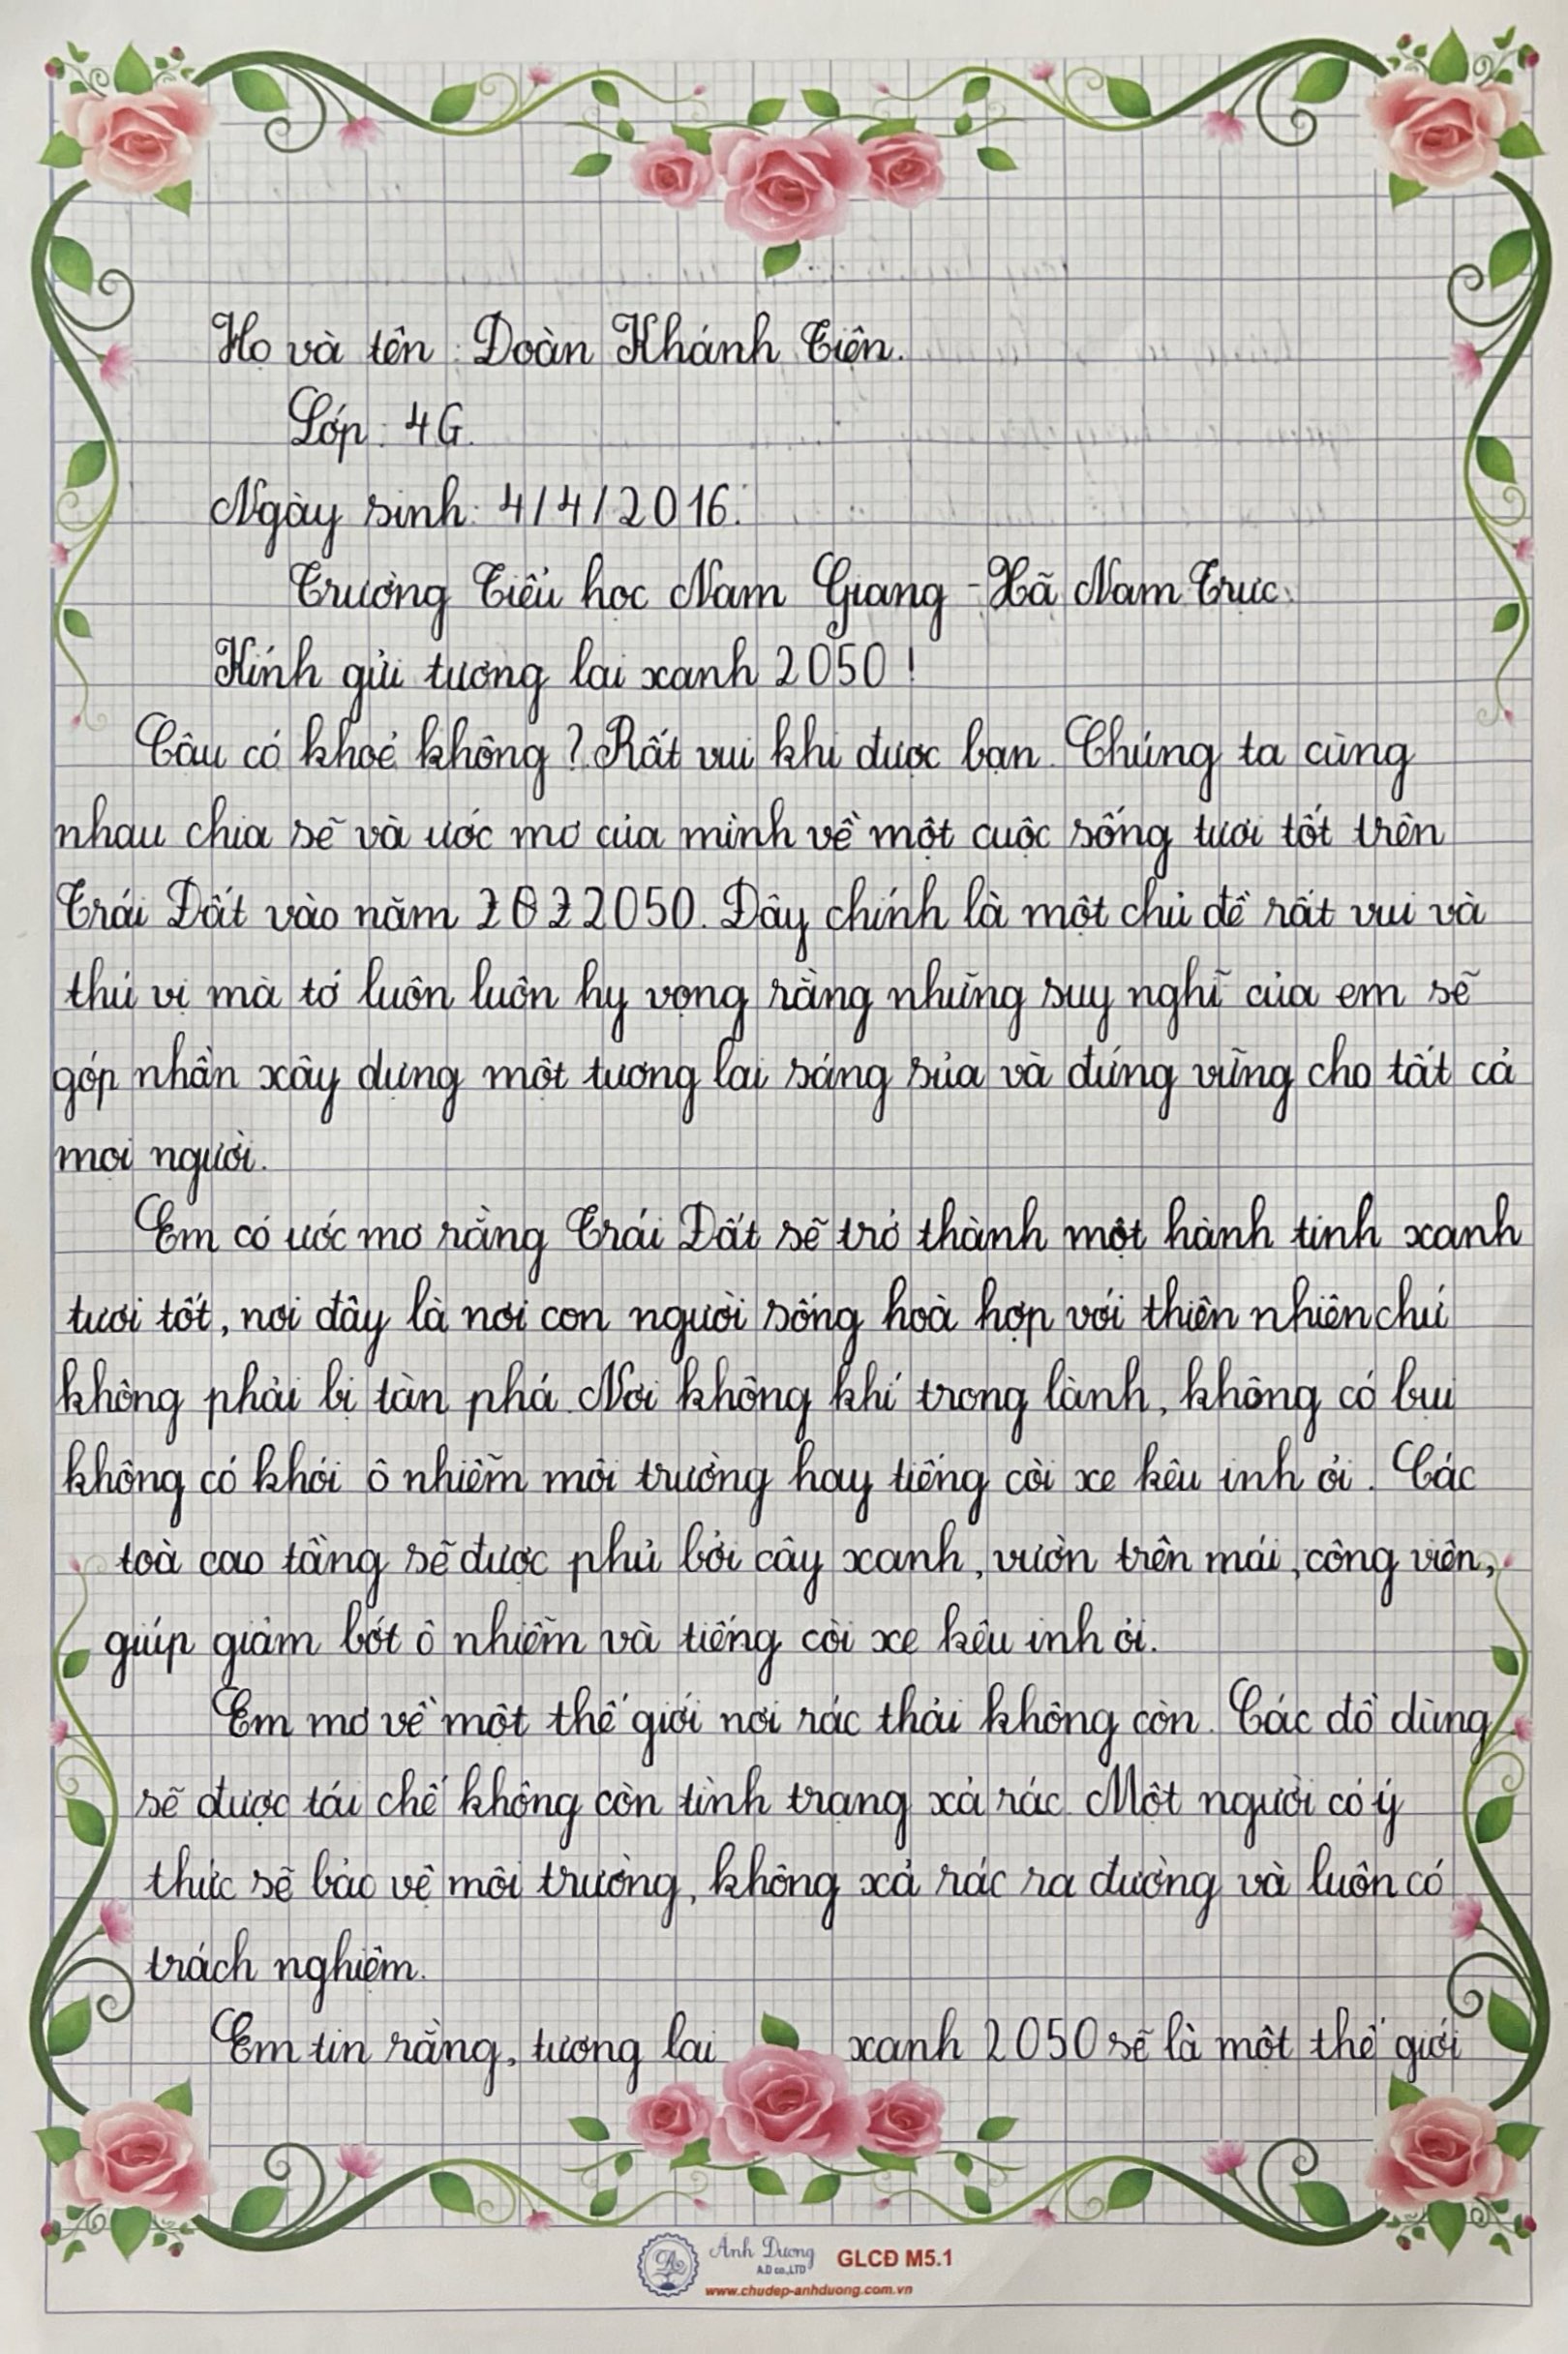 Họ và tên: Đoàn Khánh Tiên.
Lớp: 4G.
Ngày sinh: 4/4/2016.
Trường Tiểu học Nam Giang - Xã Nam Trực.
Kính gửi tương lai xanh 2050!
Cậu có khoẻ không? Rất vui khi được bạn. Chúng ta cùng
nhau chia sẽ và ước mơ của mình về một cuộc sống tươi tốt trên
Trái Đất vào năm 2022050. Đây chính là một chủ đề rất vui và
thú vị mà tớ luôn luôn hy vọng rằng những suy nghĩ của em sẽ
góp nhần xây dựng một tương lai sáng sủa và đứng vững cho tất cả
mọi người.
Em có ước mơ rằng Trái Đất sẽ trở thành một hành tinh xanh
tươi tốt, nơi đây là nơi con người sống hoà hợp với thiên nhiên chứ
không phải bị tàn phá. Nơi không khí trong lành, không có bụi
không có khói ô nhiễm môi trường hay tiếng còi xe kêu inh ỏi. Các
toà cao tầng sẽ được phủ bởi cây xanh, vườn trên mái, công viên,
giúp giảm bớt ô nhiễm và tiếng còi xe kêu inh ỏi.
Em mơ về một thế giới nơi rác thải không còn. Các đồ dùng
sẽ được tái chế không còn tình trạng xả rác. Một người có ý
thức sẽ bảo vệ môi trường, không xả rác ra đường và luôn có
trách nghiệm.
Em tin rằng, tương lai xanh 2050 sẽ là một thế giới
Ánh Dương GLCĐ M5.1
A.D co.,LTD
www.chudep-anhduong.com.vn